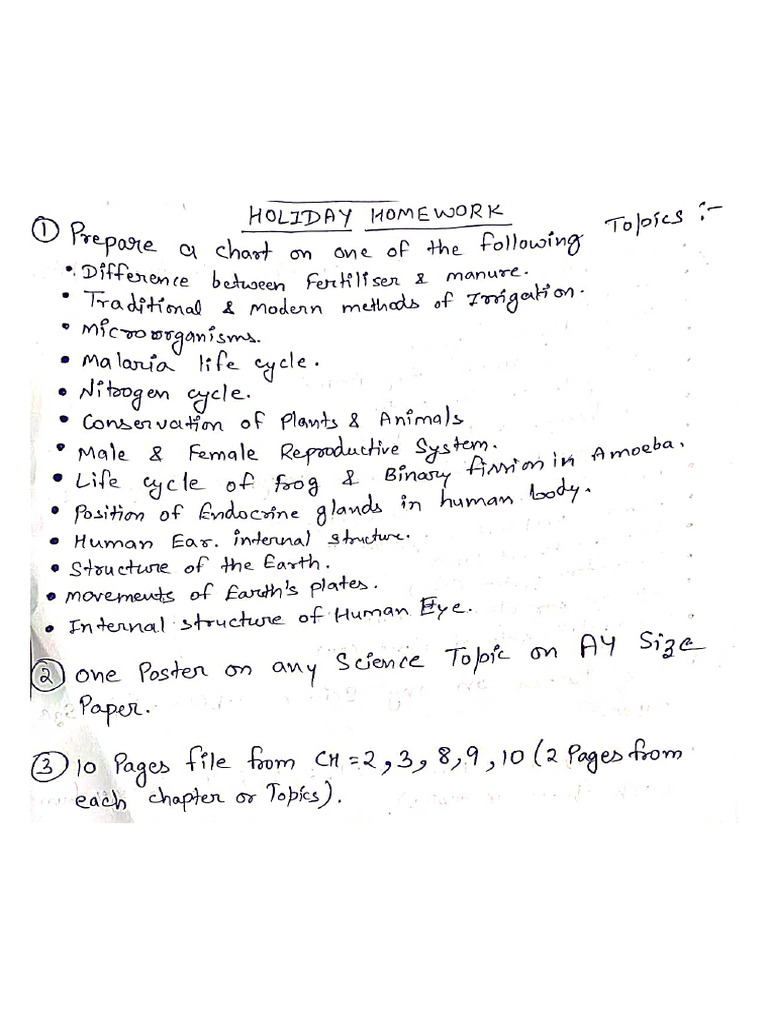 HOLIDAY HOMEWORK
① Prepare a chart on one of the following Topics :-
• Difference between Fertiliser & manure.
• Traditional & Modern methods of Irrigation.
• Microorganisms.
• Malaria life cycle.
• Nitrogen cycle.
• Conservation of Plants & Animals
• Male & Female Reproductive System.
• Life cycle of frog & Binary fission in Amoeba.
• Position of Endocrine glands in human body.
• Human Ear. internal structure.
• Structure of the Earth.
• Movements of Earth's plates.
• Internal structure of Human Eye.
② One Poster on any Science Topic on A4 Size
Paper.
③ 10 Pages file from CH = 2, 3, 8, 9, 10 (2 Pages from
each chapter or Topics).